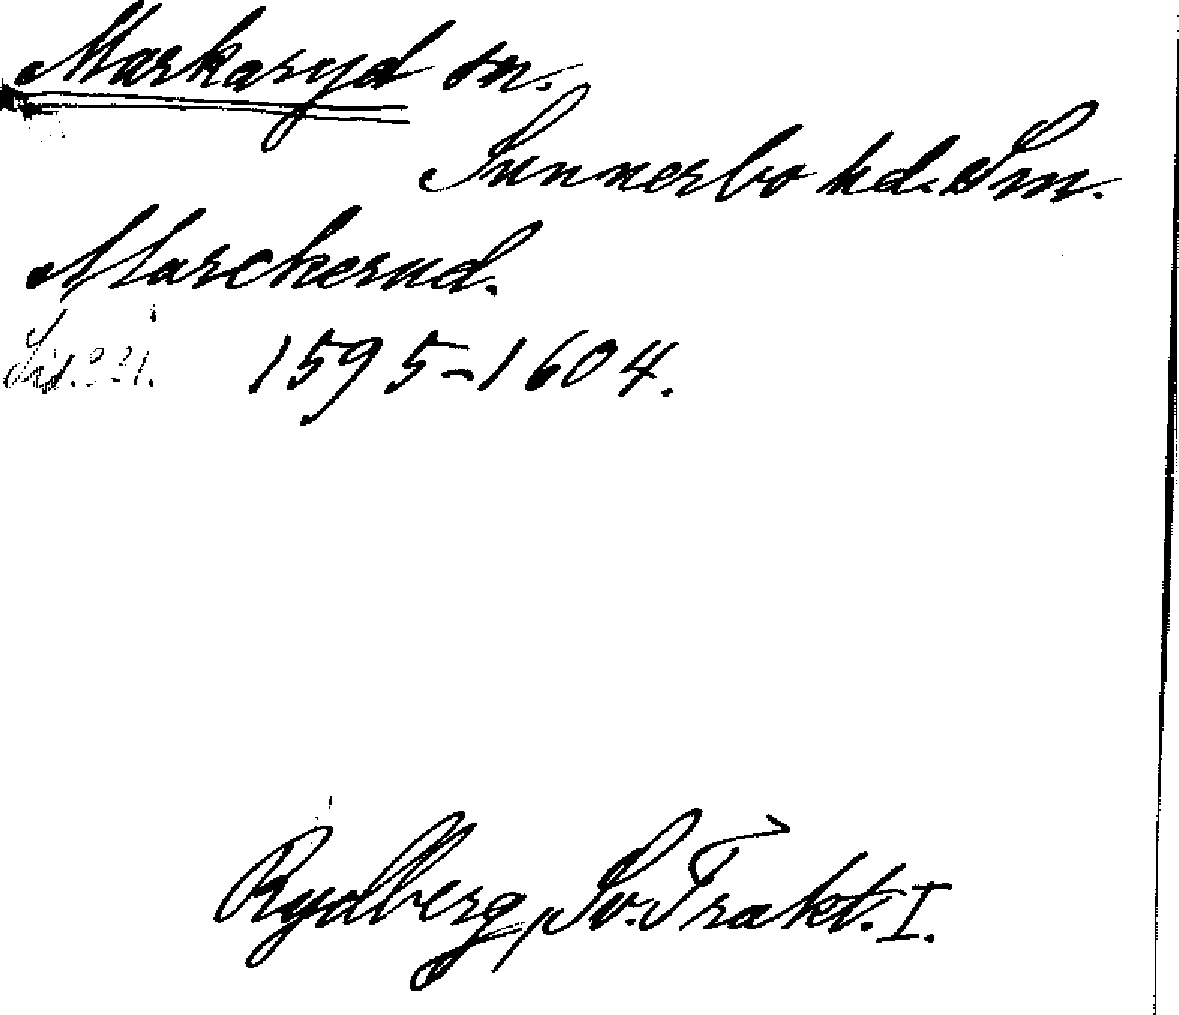 Markaryd sn.
Sunnerbo hd. Sm.
Marckerud.
Lit. 1595-1604.
Rydberg, Sv. Trakt. I.